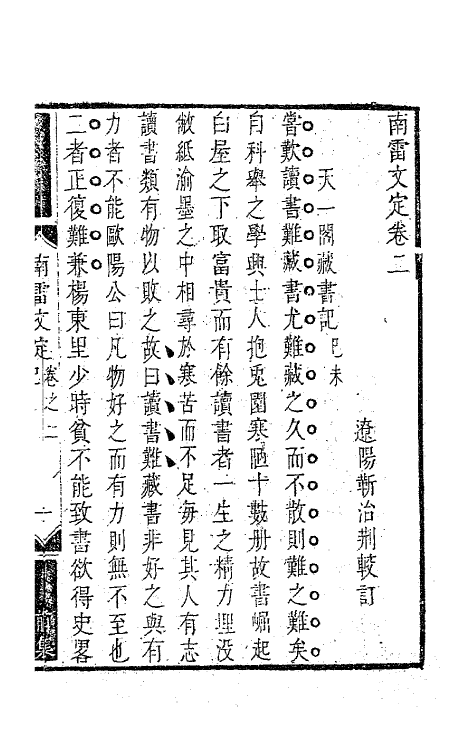 南雷文定卷二
遼陽靳治荆較訂
天一閣藏書記己未
嘗歎讀書難藏書尤難藏之久而不散則難之難矣
自科舉之學興士人抱兎園寒陋十數册故書崛起
白屋之下取富貴而有餘讀書者一生之精力埋没
敝紙渝墨之中相尋於寒苦而不足每見其人有志
讀書類有物以敗之故曰讀書難藏書非好之與有
力者不能歐陽公曰凡物好之而有力則無不至也
二者正復難兼楊東里少時貧不能致書欲得史畧
南雷文定 卷之二 一